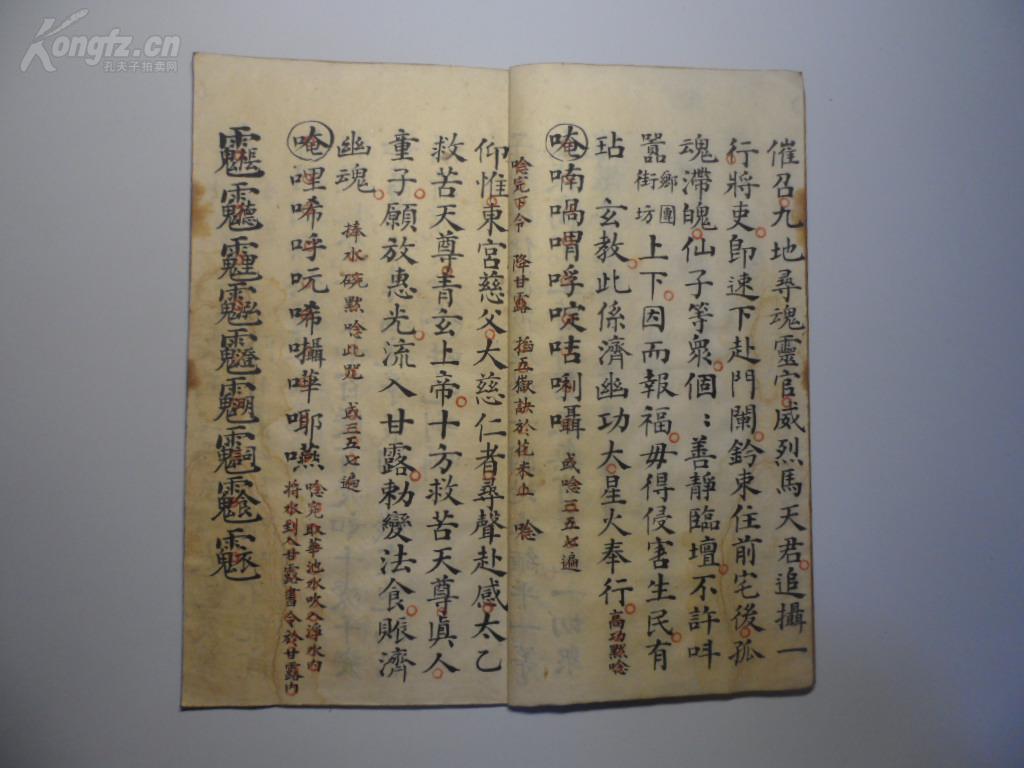 Kongfz.cn
孔夫子拍卖网
催召九地尋魂靈官威烈馬天君追攝一
行將吏卽速下赴門闌鈐束住前宅後孤
魂滯魄仙子等衆個：善靜臨壇不許呌
囂街坊鄉團上下因而報福毋得侵害生民有
玷玄教此係濟幽功大星火奉行 高功默唸
唵喃喎喟哹啶咭唎囁 或唸三五七遍
唸完下令 降甘露 掐五嶽訣於花米上 唸
仰惟東宮慈父大慈仁者尋聲赴感太乙
救苦天尊青玄上帝十方救苦天尊眞人
童子願放惠光流入甘露勅變法食賑濟
幽魂 捧水碗默唸此咒 或三五七遍
唵哩唏呼呍唏囁嘩㖿嚥 唸完取華池水吹入淨水内
將水到入甘露書令於甘露内